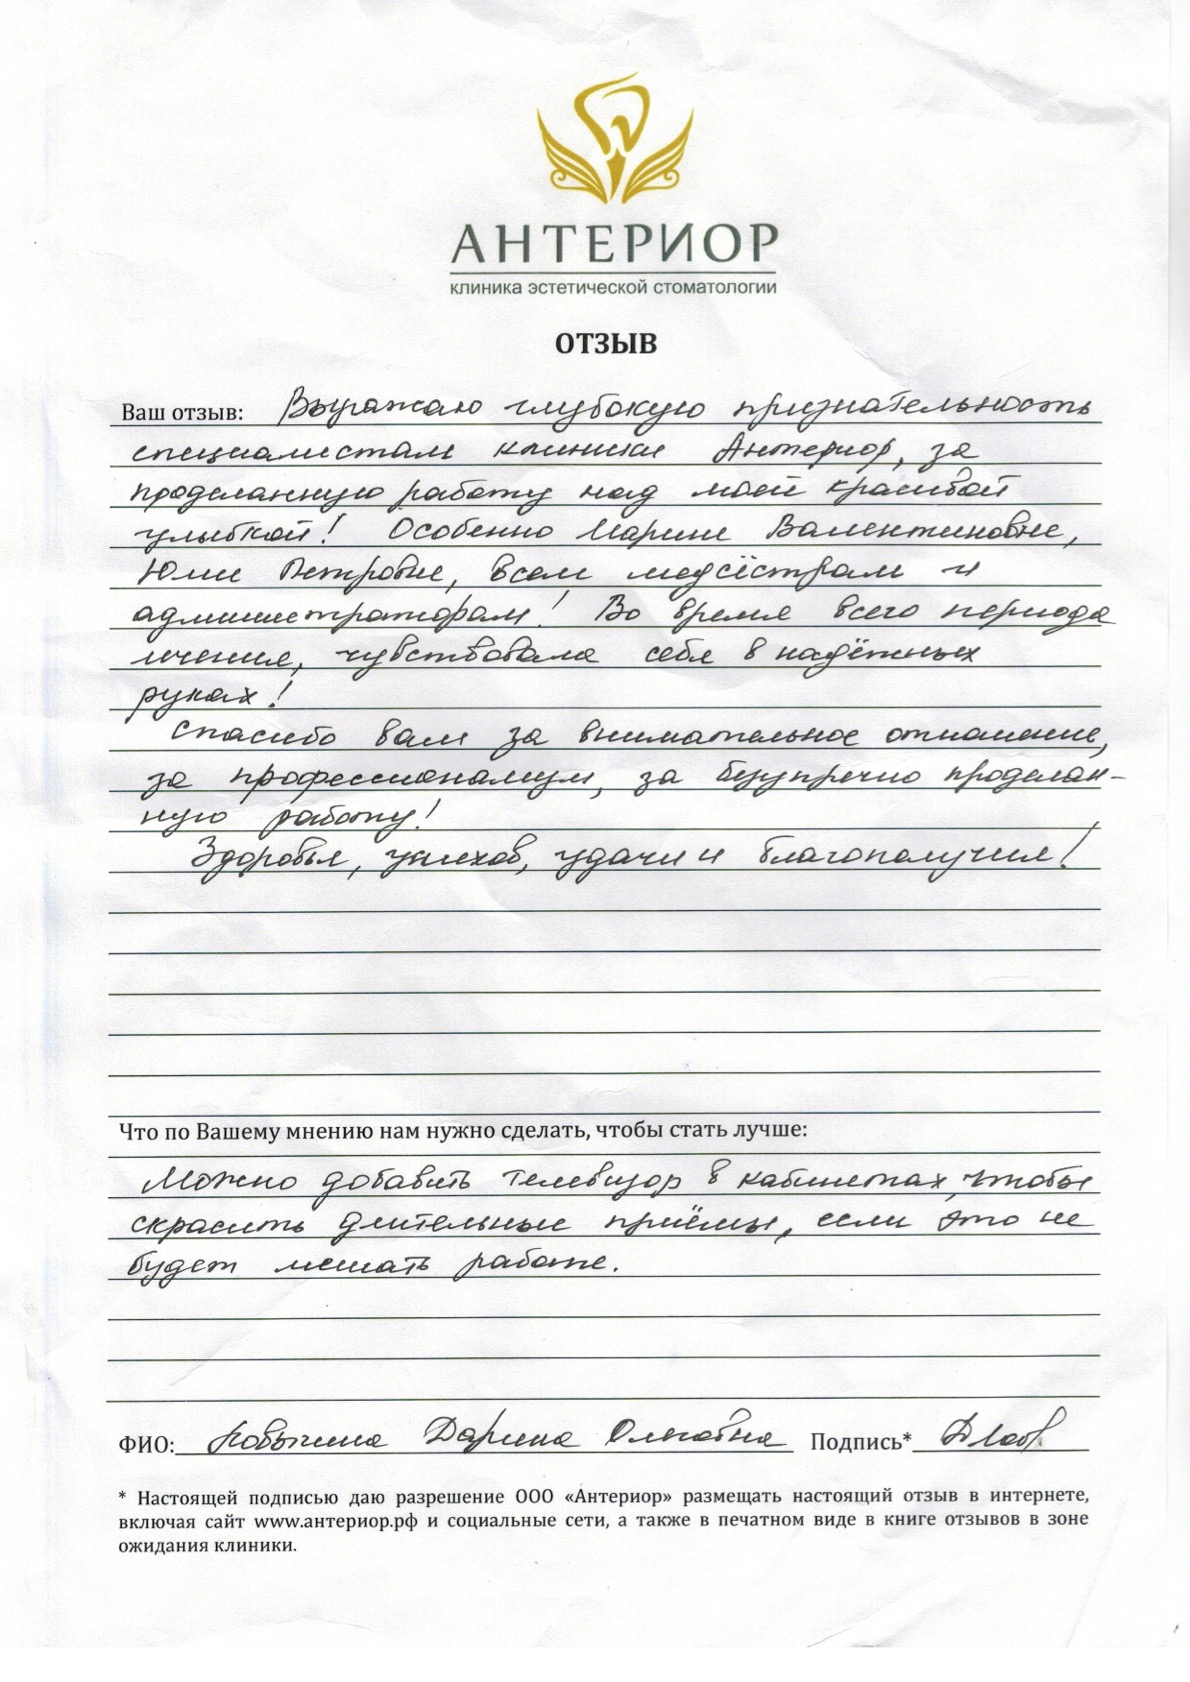 АНТЕРИОР
клиника эстетической стоматологии
ОТЗЫВ
Ваш отзыв: Выражаю глубокую признательность
специалистам клиники Антериор, за
проделанную работу над моей красивой
улыбкой! Особенно Марине Валентиновне,
Юлии Петровне, всем медсёстрам и
администраторам! Во время всего периода
лечения, чувствовала себя в надёжных
руках!
Спасибо вам за внимательное отношение,
за профессионализм, за безупречно проделан-
ную работу!
Здоровья, успехов, удачи и благополучия!
Что по Вашему мнению нам нужно сделать, чтобы стать лучше:
Можно добавить телевизор в кабинетах, чтобы
скрасить длительные приёмы, если это не
будет мешать работе.
ФИО: Дарина Олеговна Подпись*
* Настоящей подписью даю разрешение ООО «Антериор» размещать настоящий отзыв в интернете,
включая сайт www.антериор.рф и социальные сети, а также в печатном виде в книге отзывов в зоне
ожидания клиники.